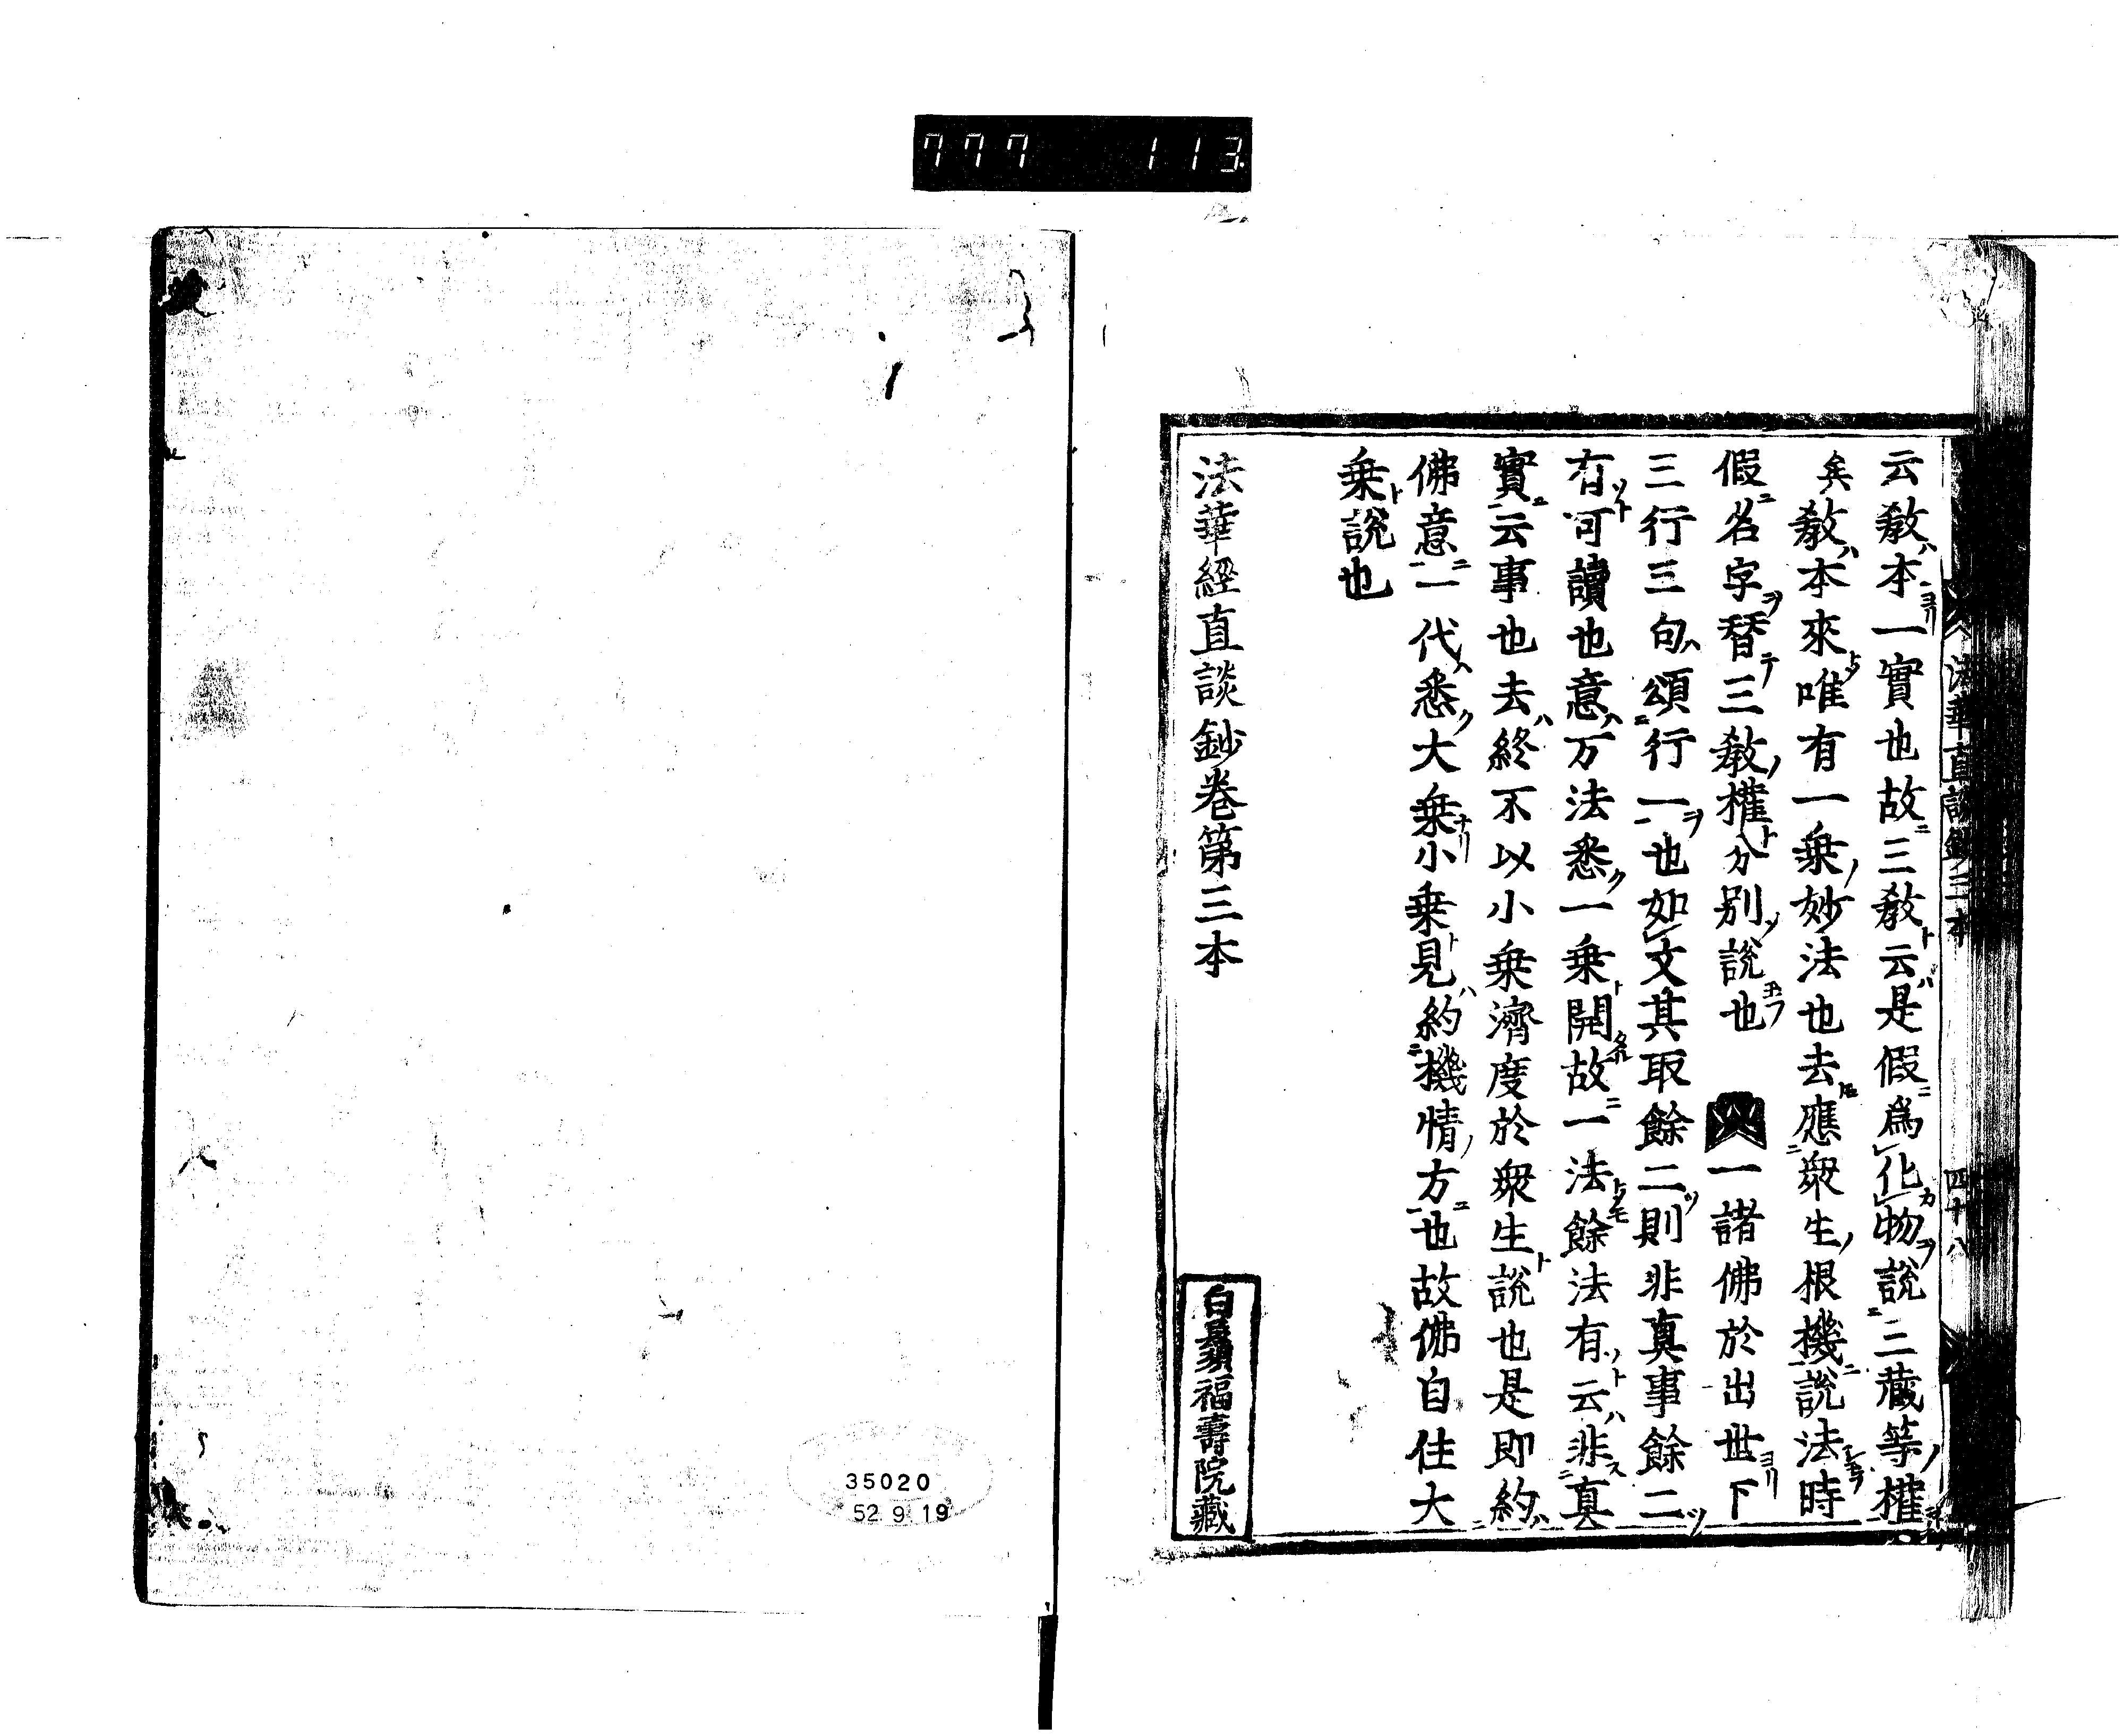 777 113
法華直談鈔三本
四十八
云敎ハ本ヨリ一實也故ニ三敎ト云ハ是假ニ爲化物ヲ說ニ三藏等ノ權
矣敎ハ本來唯有一乗ノ妙法也去應ニ衆生ノ根機ニ說法時
假ニ名字ヲ替テ三敎ノ權ト分別說玉フ也 一諸佛於出世ヨリ下
三行三句ハ頌ニ行一ヲ也如文其取餘二ツ則非真事餘二ツ
有ツト可讀也意ハ万法悉ク一乗ト開故ニ一法トメモ餘法有ト云ハ非ス真
實ニ云事也去ハ終不以小乗濟度於衆生ト說也是即約ハ
佛意ニ一代ハ悉ク大乗ナリ小乗ト見ハ約ニ機情ノ方ニ也故佛自住大
乗ト說也
法華經直談鈔卷第三本
福壽院藏
35020
52 9 19